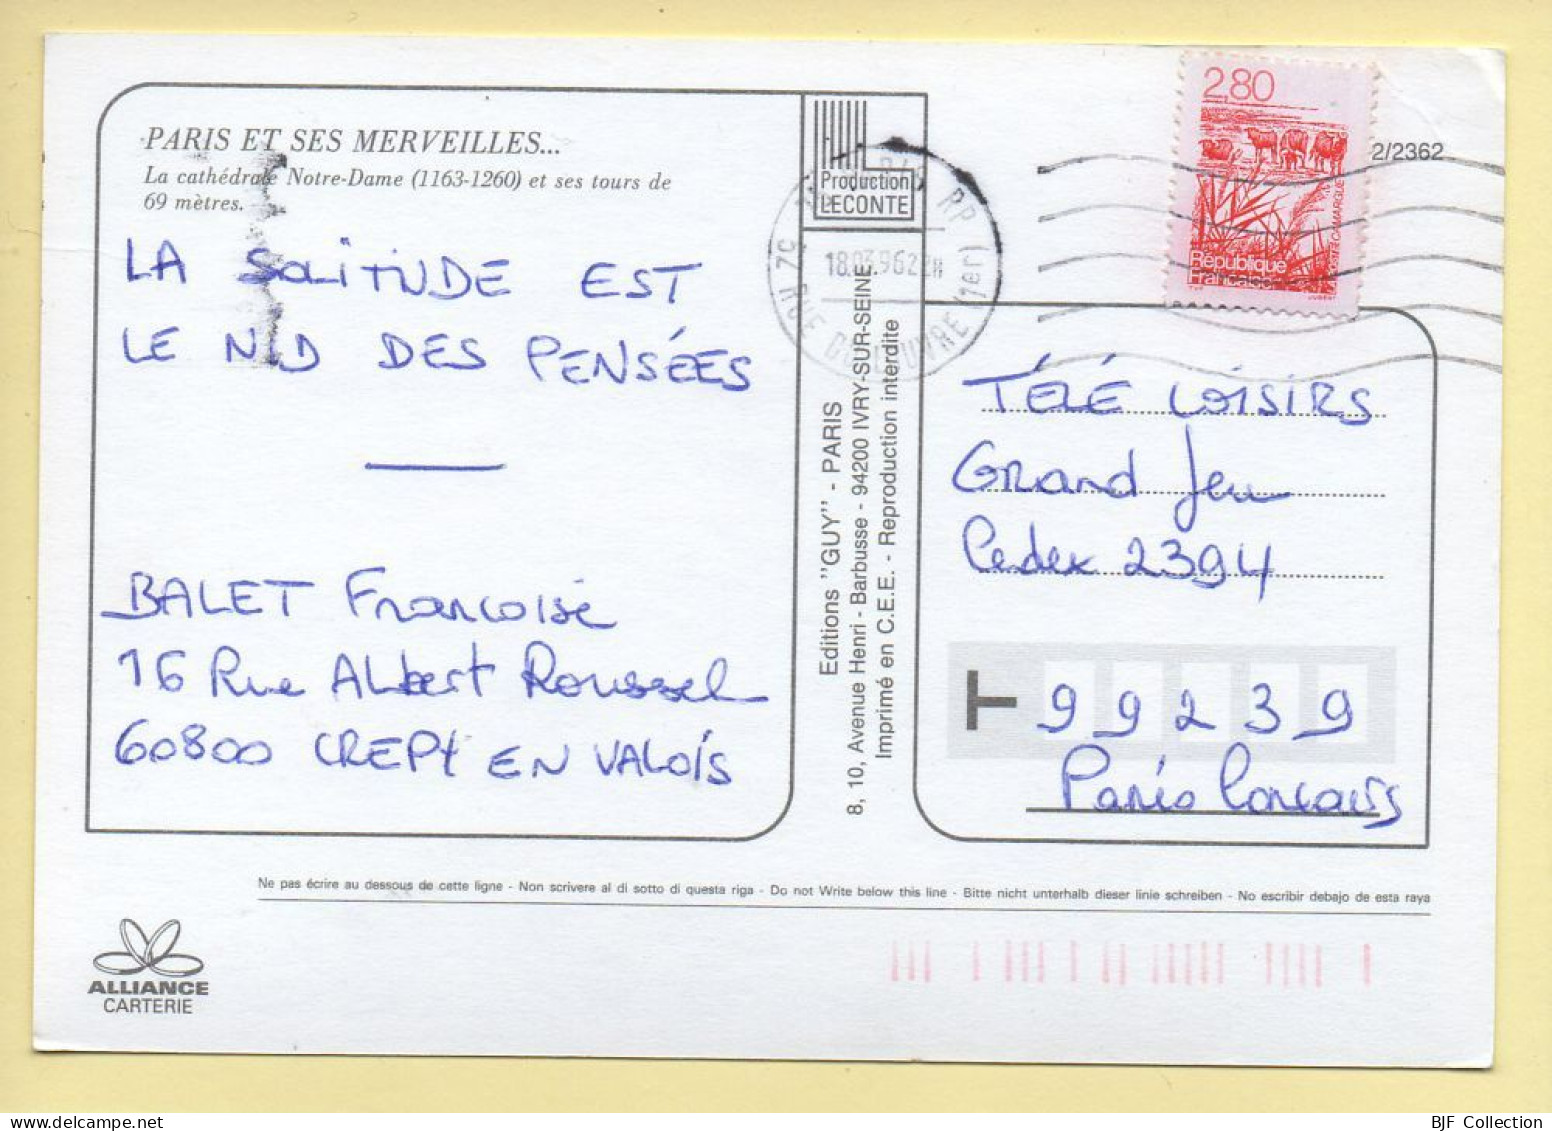 PARIS ET SES MERVEILLES...
La cathédrale Notre-Dame (1163-1260) et ses tours de
69 mètres.
LA SOLITUDE EST
LE NID DES PENSÉES
BALET Francoise
16 Rue Albert Roussel
60800 CREPY EN VALOIS
Production
LECONTE
RP (1er)
18.03.96
RUE DU LOUVRE
Editions "GUY" - PARIS
8, 10, Avenue Henri - Barbusse - 94200 IVRY-SUR-SEINE
Imprimé en C.E.E. - Reproduction interdite
2,80
République
Française
CAMARGUE
2/2362
TÉLÉ LOISIRS
Grand Jeu
Cedex 2394
T 99239
Paris Concours
Ne pas écrire au dessous de cette ligne - Non scrivere al di sotto di questa riga - Do not Write below this line - Bitte nicht unterhalb dieser linie schreiben - No escribir debajo de esta raya
ALLIANCE
CARTERIE
BJF Collection